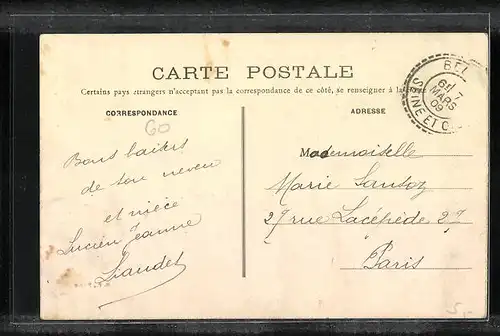 CARTE POSTALE
Certains pays étrangers n'acceptant pas la correspondance de ce côté, se renseigner à la
CORRESPONDANCE
ADRESSE
60
Bons baisers
de ton neveu
et nièce
Lucien Jeanne
Liaudet
Mademoiselle
Marie Sansoz
27 rue Lacépède 27
Paris
BEL
7
MARS
09
SEINE ET O
5,-